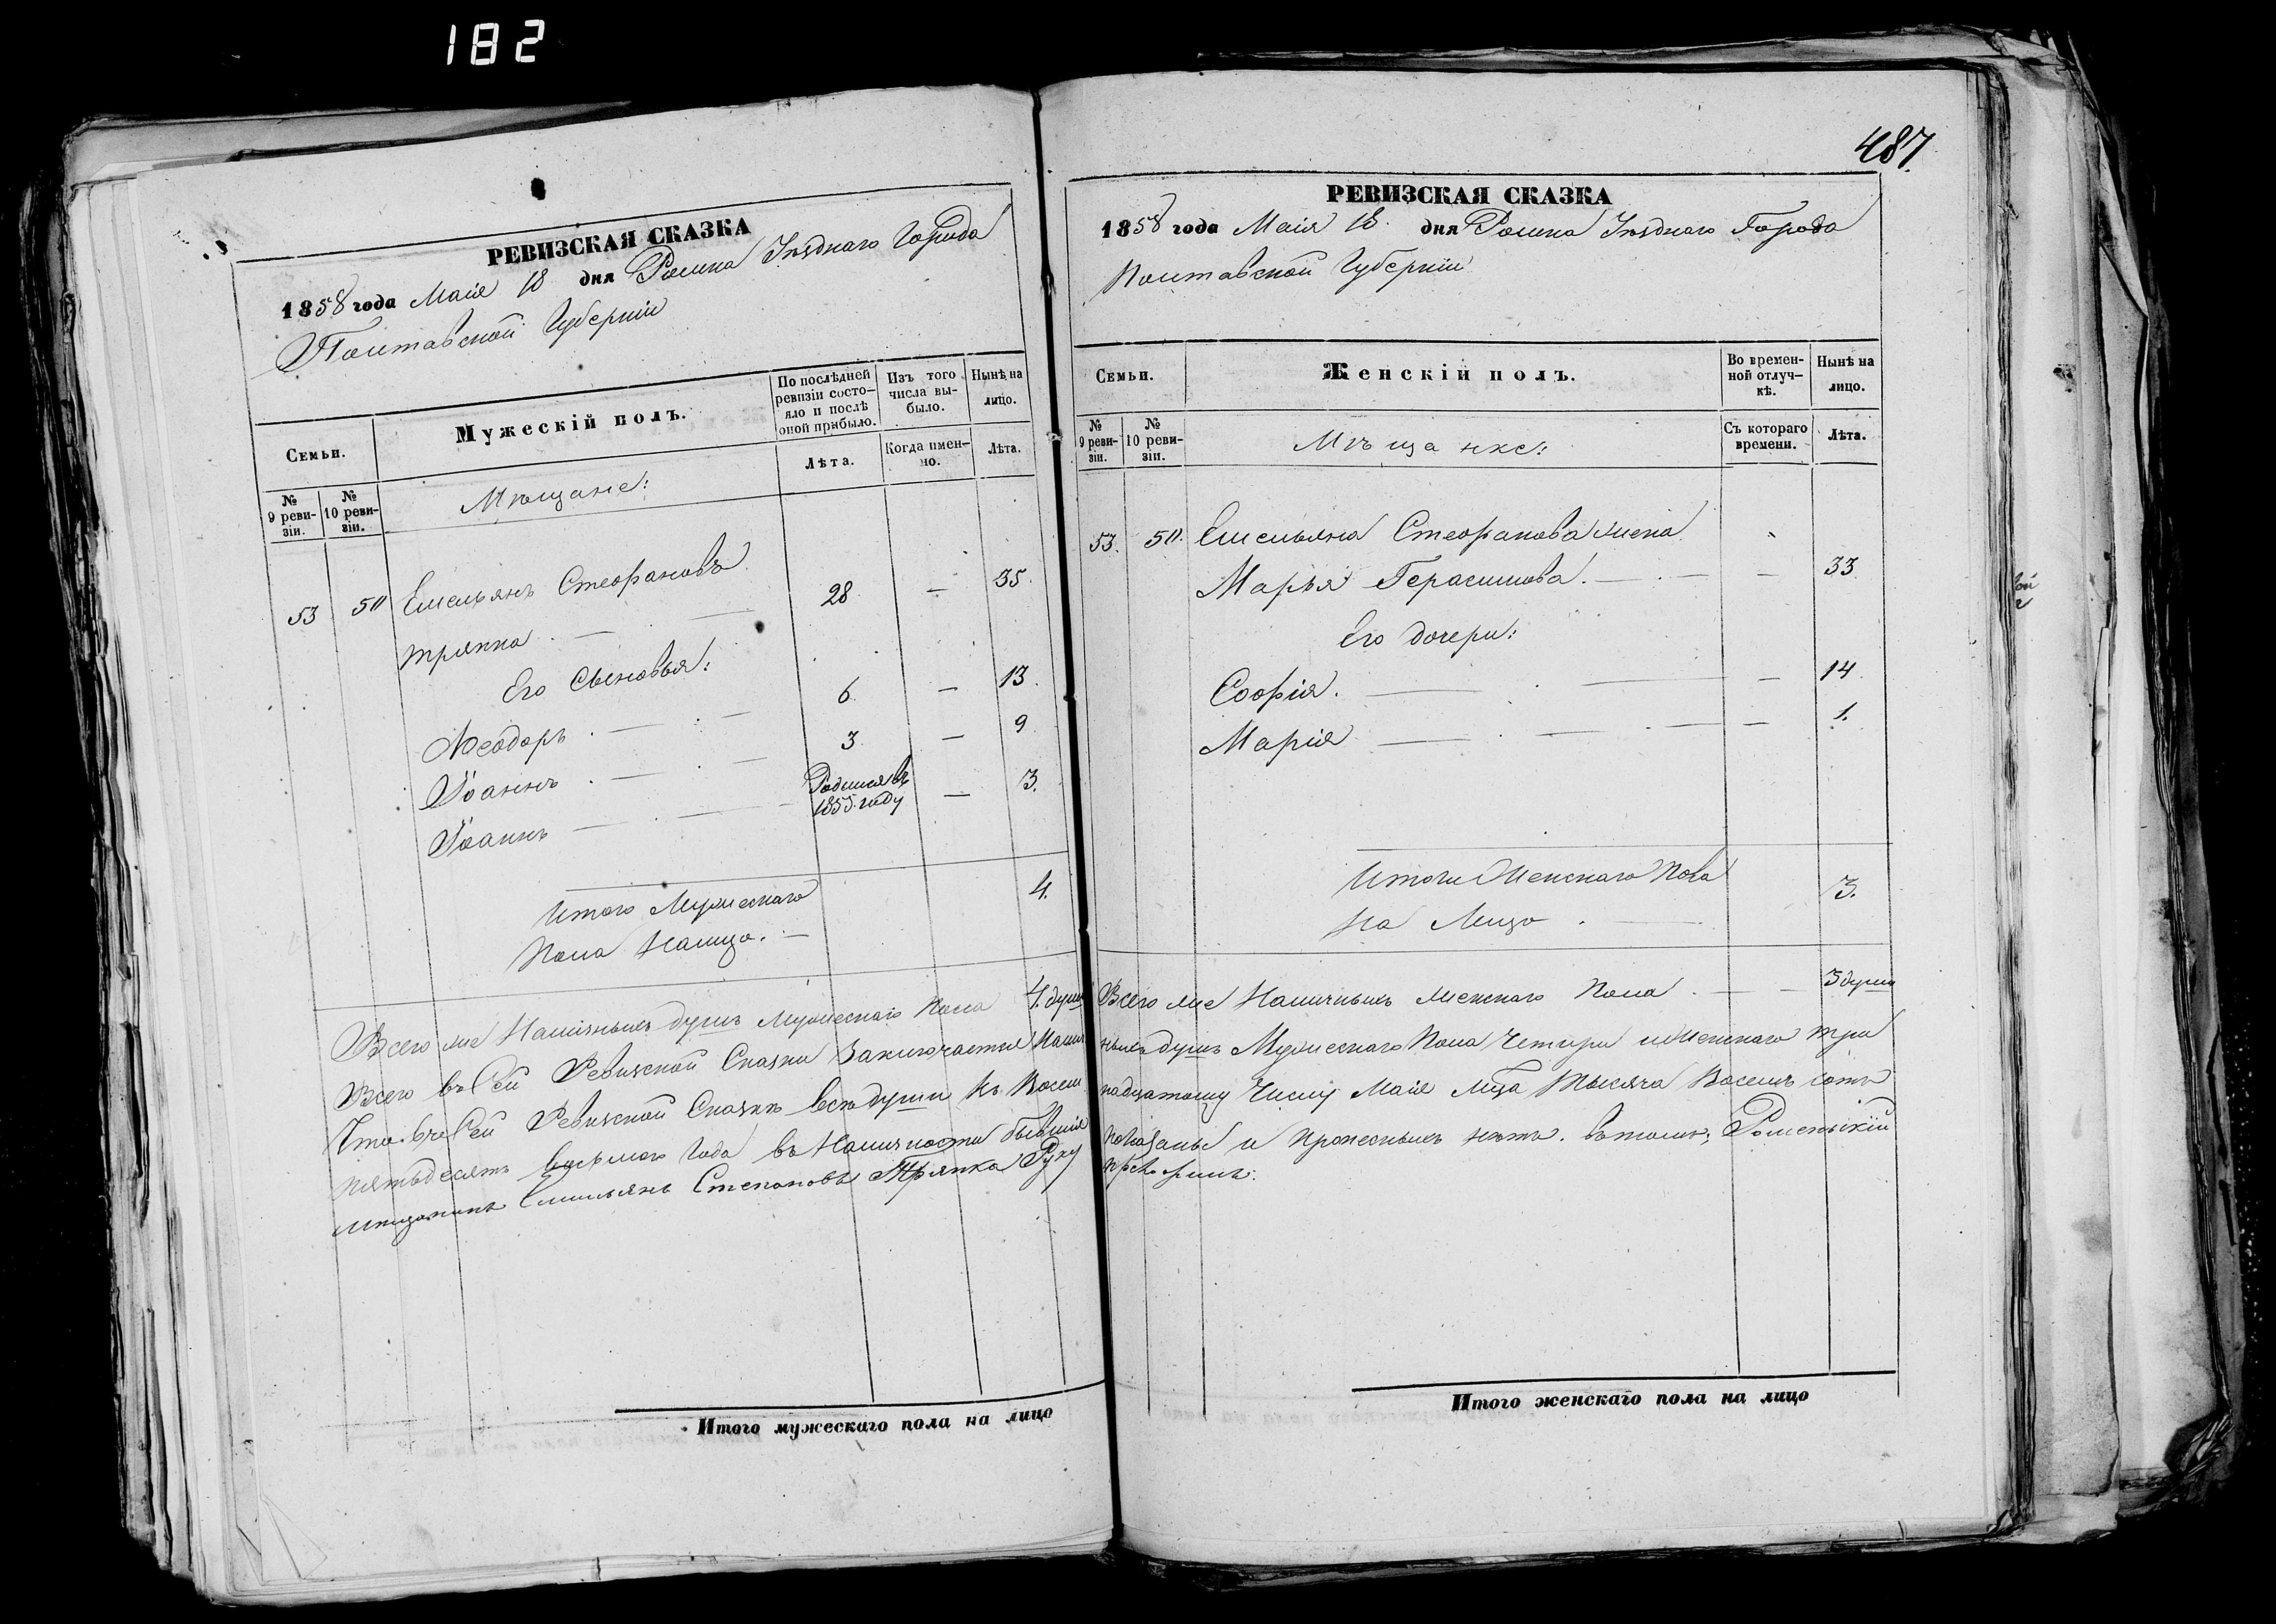 182
РЕВИЗСКАЯ СКАЗКА
1858 года Маія 18 дня Ромна Уѣзднаго Города
Полтавской Губерніи
Семьи.
Мужескій полъ.
По послѣдней ревизіи состояло и послѣ оной прибыло.
Изъ того числа выбыло.
Нынѣ на лицо.
№ 9 ревизіи.
№ 10 ревизіи.
Мѣщане:
Лѣта.
Когда именно.
Лѣта.
53 50 Емельянъ Стефановъ
Тряпка . — 28 — 35.
Его Сыновья:
Ѳеодоръ . — 6 — 13.
Іоаннъ . — 3 — 9
Іоаннъ — Родился въ 1855. году — 3.
Итого Мужескаго
Пола Налицо. — 4.
Всего же Наличныхъ душъ мужескаго Пола 4. души
Всего въ Сей Ревизской Сказки Заключается Налич
Что въ Сей Ревизской Сказкѣ всѣ души къ Восем
пятьдесятъ восьмого Года въ Наличности бывшіе
Мѣщанинъ Емильянъ Степановъ Тряпка Руку
Итого мужескаго пола на лицо
487.
РЕВИЗСКАЯ СКАЗКА
1858 года Маія 18. дня Ромна Уѣзднаго Города
Полтавской Губерніи
Семьи.
Женскій полъ.
Во временной отлучкѣ.
Нынѣ на лицо.
№ 9 ревизіи.
№ 10 ревизіи.
Мѣщанке:
Съ котораго времени.
Лѣта.
53. 50. Емельяна Стефанова жена
Марья Герасимова. — — 33
Его дочери:
Софія. — — 14
Марія — — 1.
Итого Женскаго Пола
На Лицо . — 3.
Всего же Наличныхъ женскаго Пола . — 3 души
ныхъ душъ Мужескаго Пола Четыри и Женскаго три
надцатому Числу Маія Мца Тысяча Восемъ сотъ
показаны и пропесныхъ нѣтъ. въ томъ, Роменьскій
Итого женскаго пола на лицо